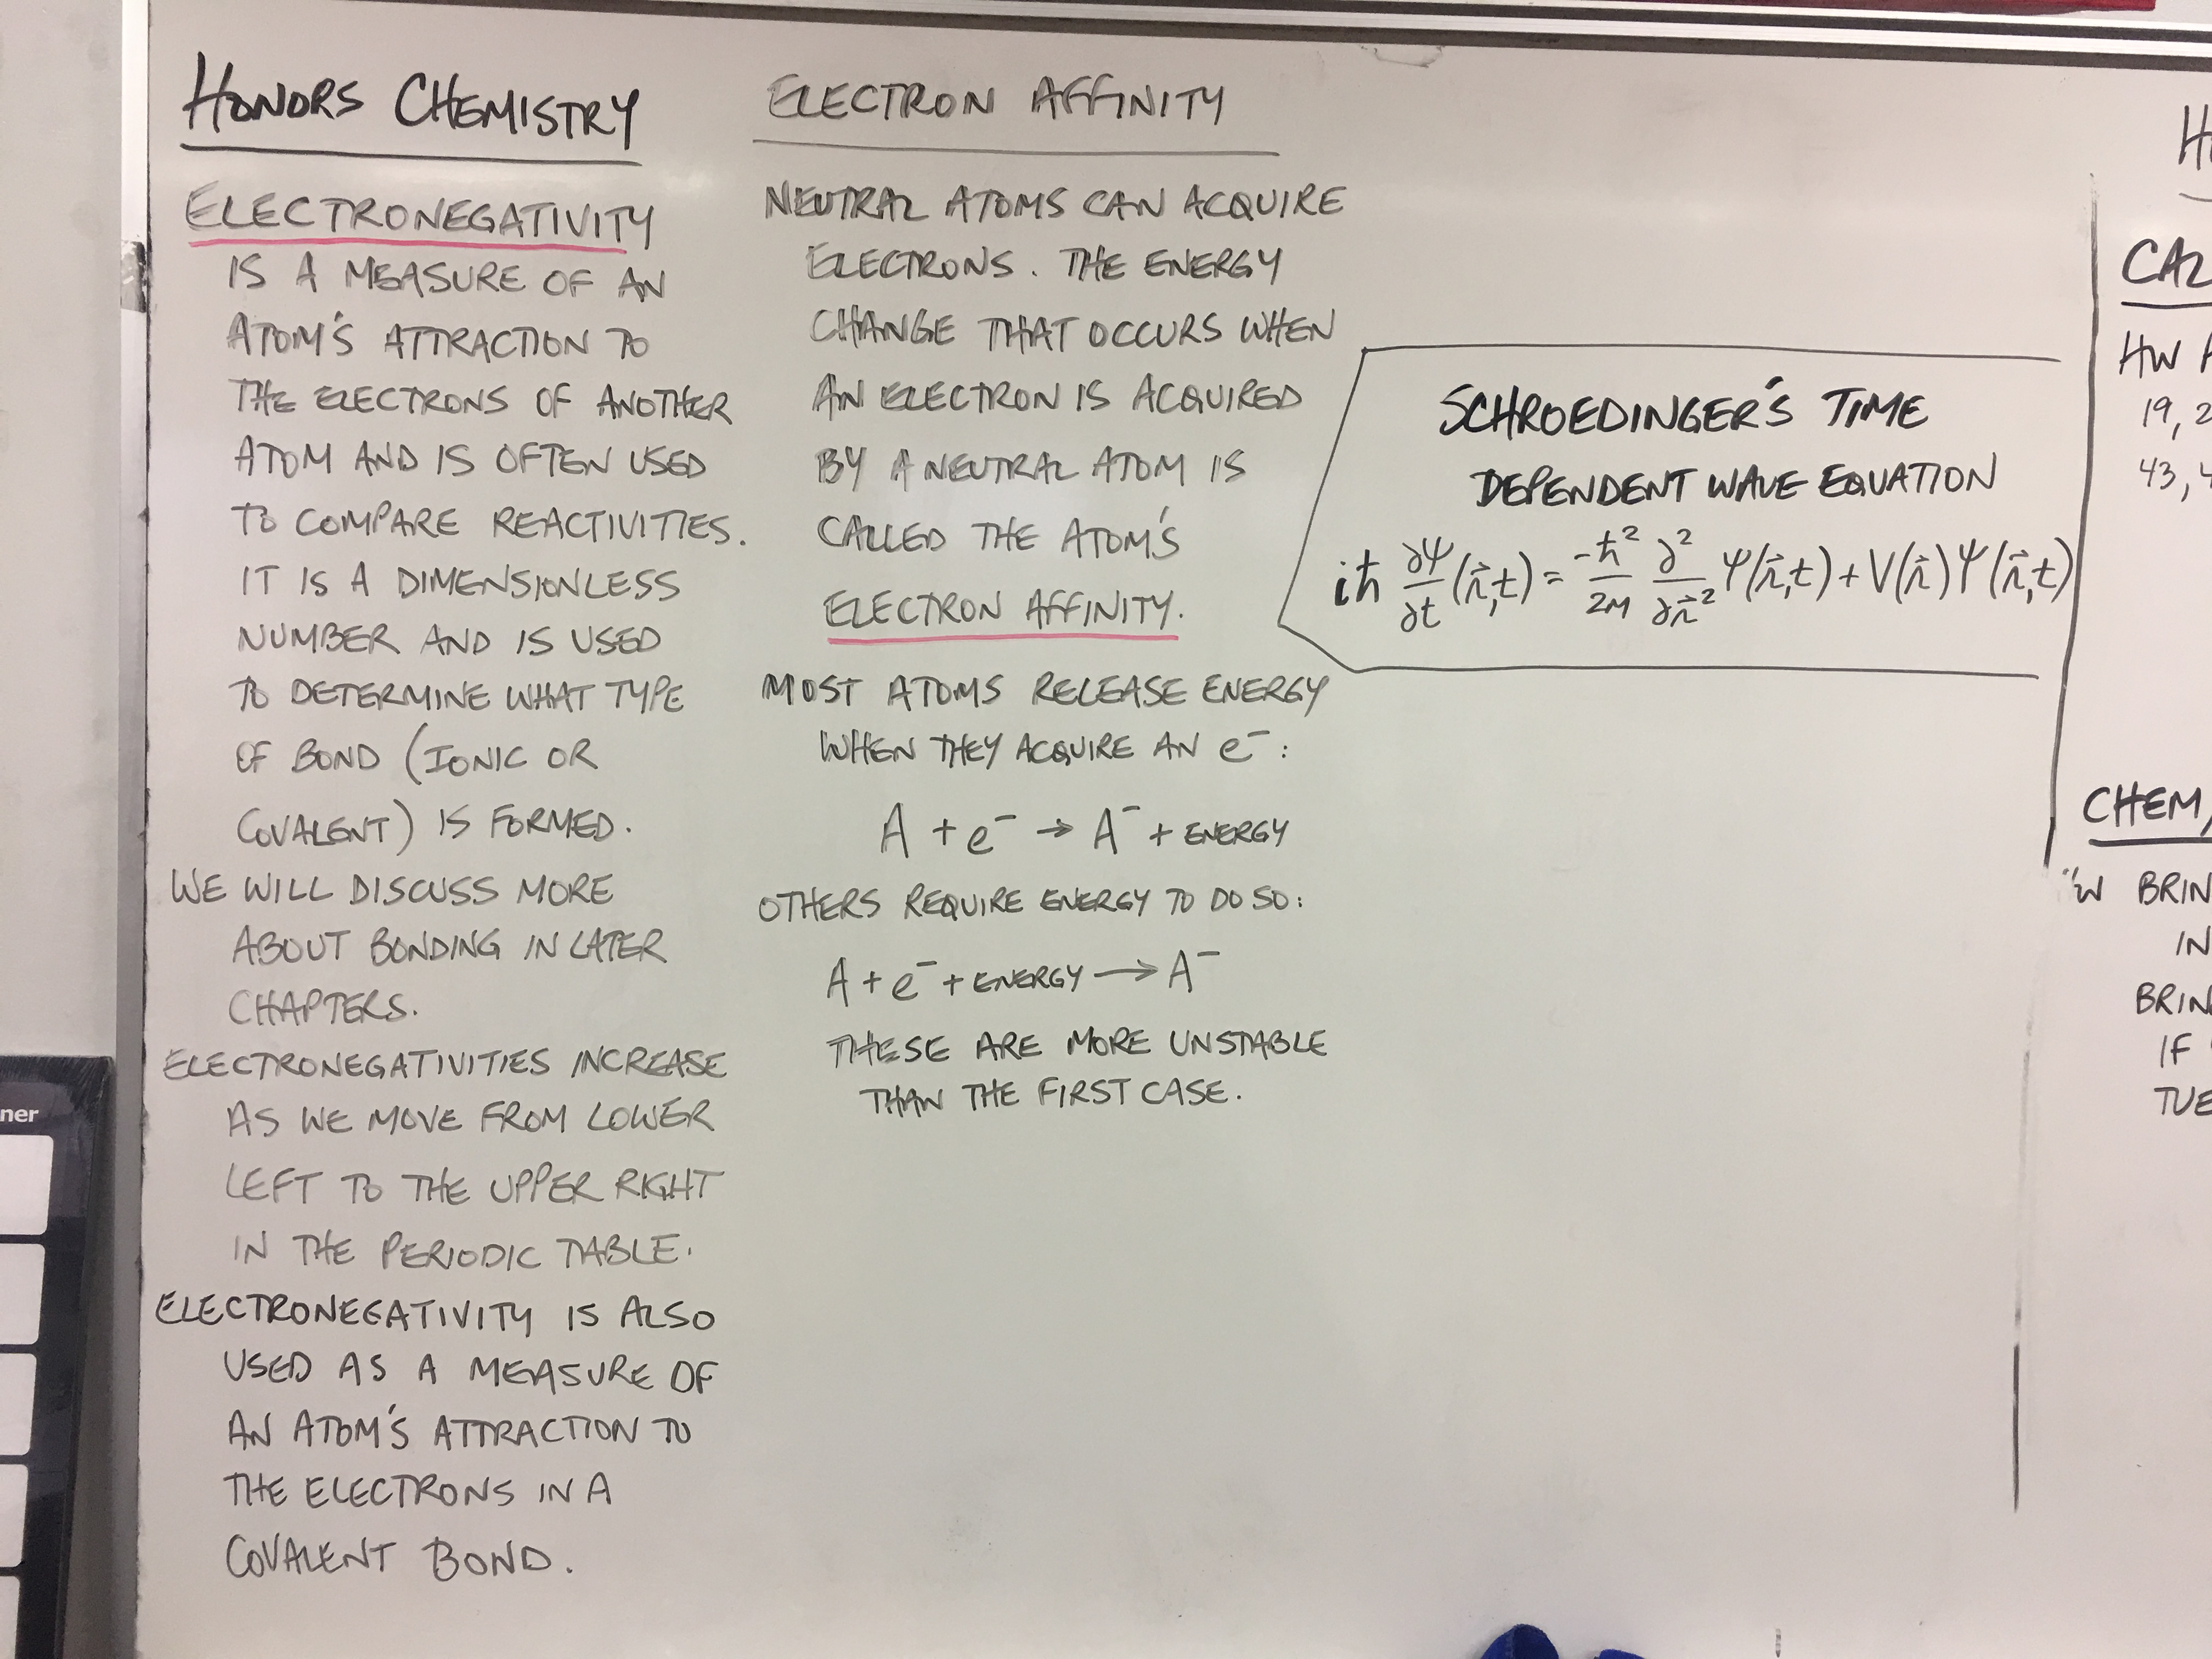 HONORS CHEMISTRY
ELECTRONEGATIVITY
IS A MEASURE OF AN
ATOM'S ATTRACTION TO
THE ELECTRONS OF ANOTHER
ATOM AND IS OFTEN USED
TO COMPARE REACTIVITIES.
IT IS A DIMENSIONLESS
NUMBER AND IS USED
TO DETERMINE WHAT TYPE
OF BOND (IONIC OR
COVALENT) IS FORMED.
WE WILL DISCUSS MORE
ABOUT BONDING IN LATER
CHAPTERS.
ELECTRONEGATIVITIES INCREASE
AS WE MOVE FROM LOWER
LEFT TO THE UPPER RIGHT
IN THE PERIODIC TABLE.
ELECTRONEGATIVITY IS ALSO
USED AS A MEASURE OF
AN ATOM'S ATTRACTION TO
THE ELECTRONS IN A
COVALENT BOND.
ELECTRON AFFINITY
NEUTRAL ATOMS CAN ACQUIRE
ELECTRONS. THE ENERGY
CHANGE THAT OCCURS WHEN
AN ELECTRON IS ACQUIRED
BY A NEUTRAL ATOM IS
CALLED THE ATOM'S
ELECTRON AFFINITY.
MOST ATOMS RELEASE ENERGY
WHEN THEY ACQUIRE AN e⁻:
A + e⁻ → A⁻ + ENERGY
OTHERS REQUIRE ENERGY TO DO SO:
A + e⁻ + ENERGY → A⁻
THESE ARE MORE UNSTABLE
THAN THE FIRST CASE.
SCHROEDINGER'S TIME
DEPENDENT WAVE EQUATION
iħ ∂Ψ/∂t (r⃗,t) = -ħ²/2M ∂²/∂r⃗² Ψ(r⃗,t) + V(r⃗)Ψ(r⃗,t)
CAL
HW
19, 2
43, 4
CHEM,
BRIN
IN
BRIN
IF
TUE
ner